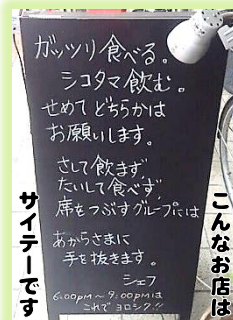 ガッツリ食べる。
シコタマ飲む。
せめてどちらかは
お願いします。
さして飲まず、
たいして食べず、
席をつぶすグループには
あからさまに
手を抜きます。
シェフ
6:00PM〜9:00PMは
これでヨロシク!!
こんなお店は
サイテーです